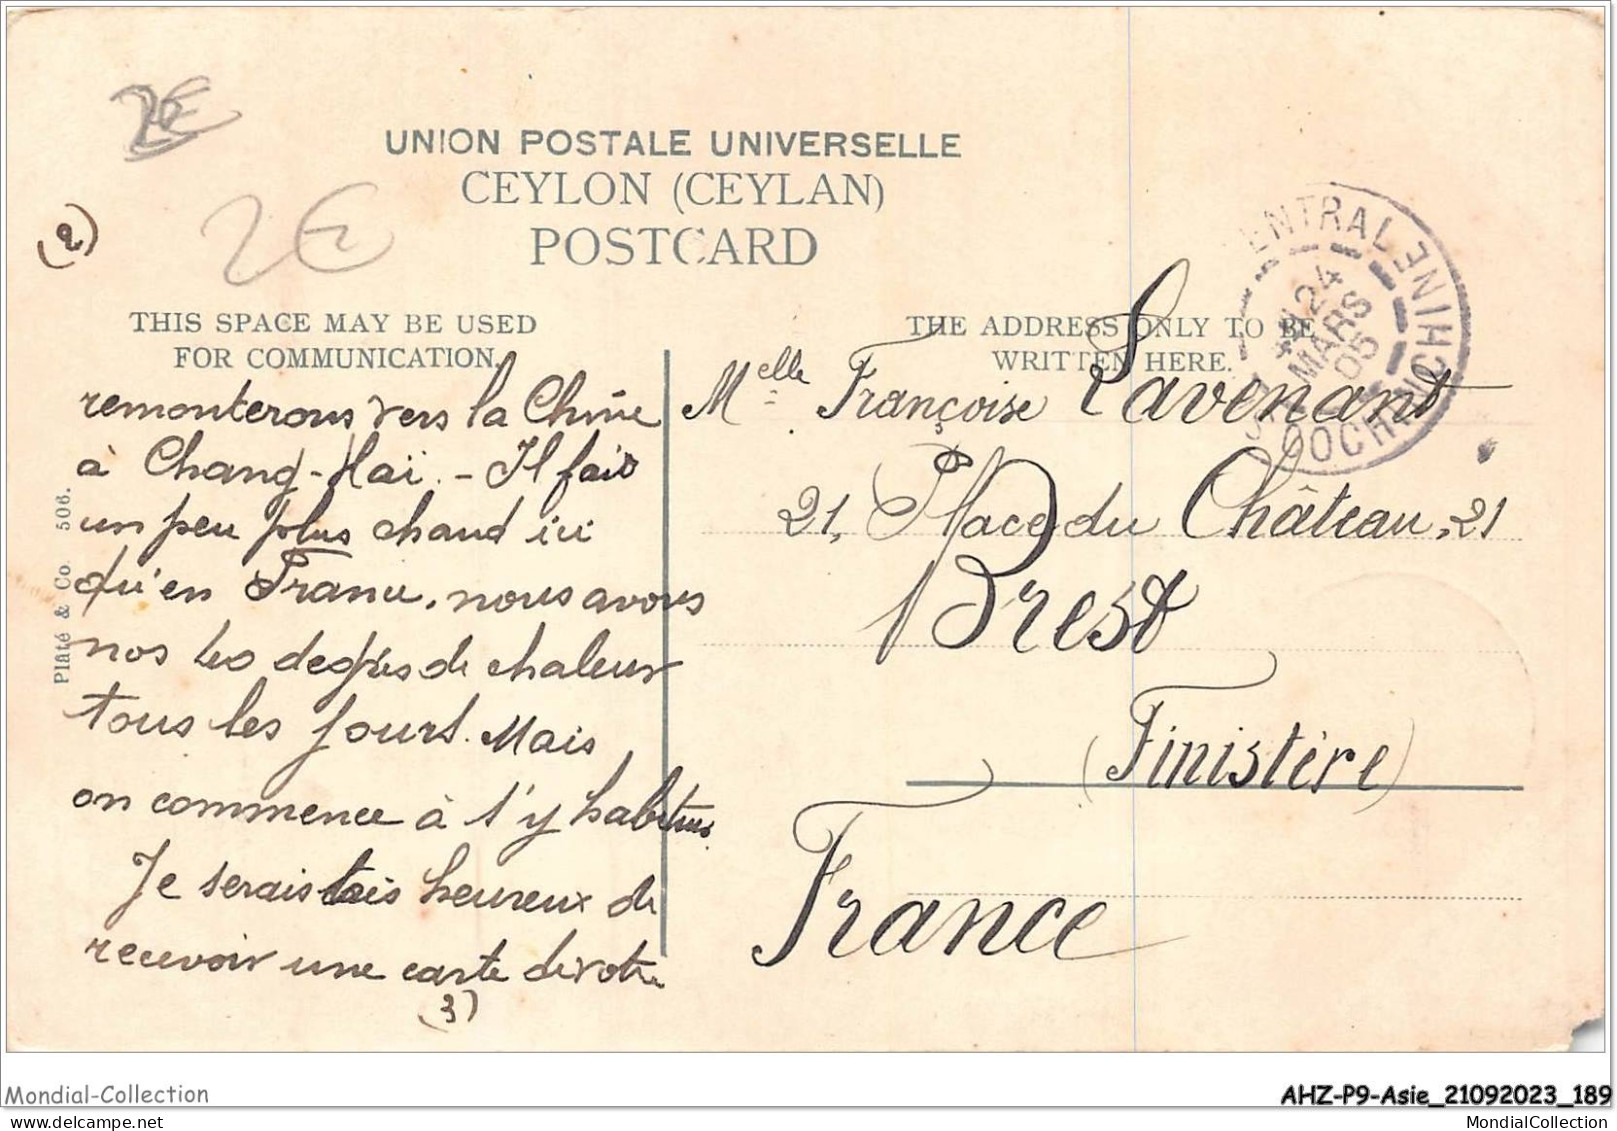 2€
2€
(2)
UNION POSTALE UNIVERSELLE
CEYLON (CEYLAN)
POSTCARD
THIS SPACE MAY BE USED
FOR COMMUNICATION.
THE ADDRESS ONLY TO BE
WRITTEN HERE.
CENTRAL
24
MARS
05
COCHINCHINE
remonterons vers la Chine
à Chang-Haï. - Il fait
un peu plus chaud ici
qu'en France, nous avons
nos degrés de chaleur
tous les jours. Mais
on commence à s'y habituer.
Je serais très heureux de
recevoir une carte de votre
(3)
Melle Françoise Lavenant
21, Place du Château, 21
Brest
(Finistère)
France
Plâté & Co 506.
Mondial-Collection
AHZ-P9-Asie_21092023_189
MondialCollection